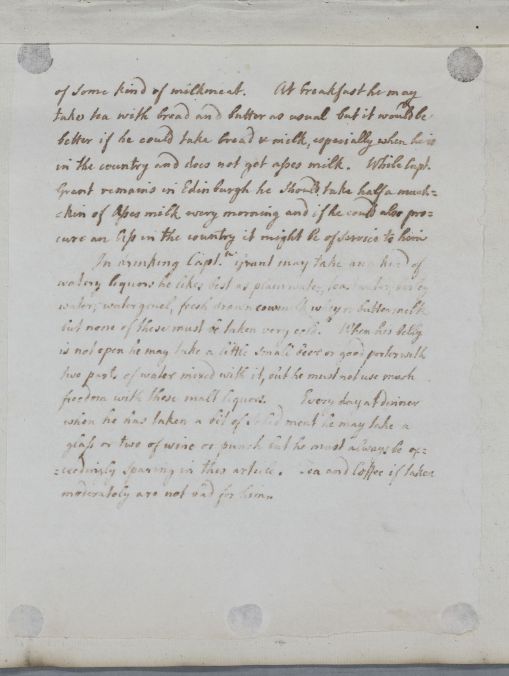 of some kind of milkmeat. At breakfast he may
take tea with bread and butter as usual but it would be
better if he could take bread & milk, especially when he is
in the country and does not get asses milk. While Capt.
Grant remains in Edinburgh he should take half a mutch=
=chkin of Asses milk every morning and if he could also pro=
cure an Ass in the country it might be of service to him
In drinking Capt.n Grant may take any kind of
watery liquors he likes best as plain water, toast water, barley
water, water gruel, fresh drawn cowmilk whey or butter milk
but none of these must be taken very cold. When his belly
is not open he may take a little small beer or good porter with
two parts of water mixed with it, but he must not use much
freedom with these malt liquors. Every day at dinner
when he has taken a bit of solid meat he may take a
glass or two of wine or punch but he must always be ex=
=ceedingly sparing in this article. Tea and Coffee if taken
moderately are not bad for him